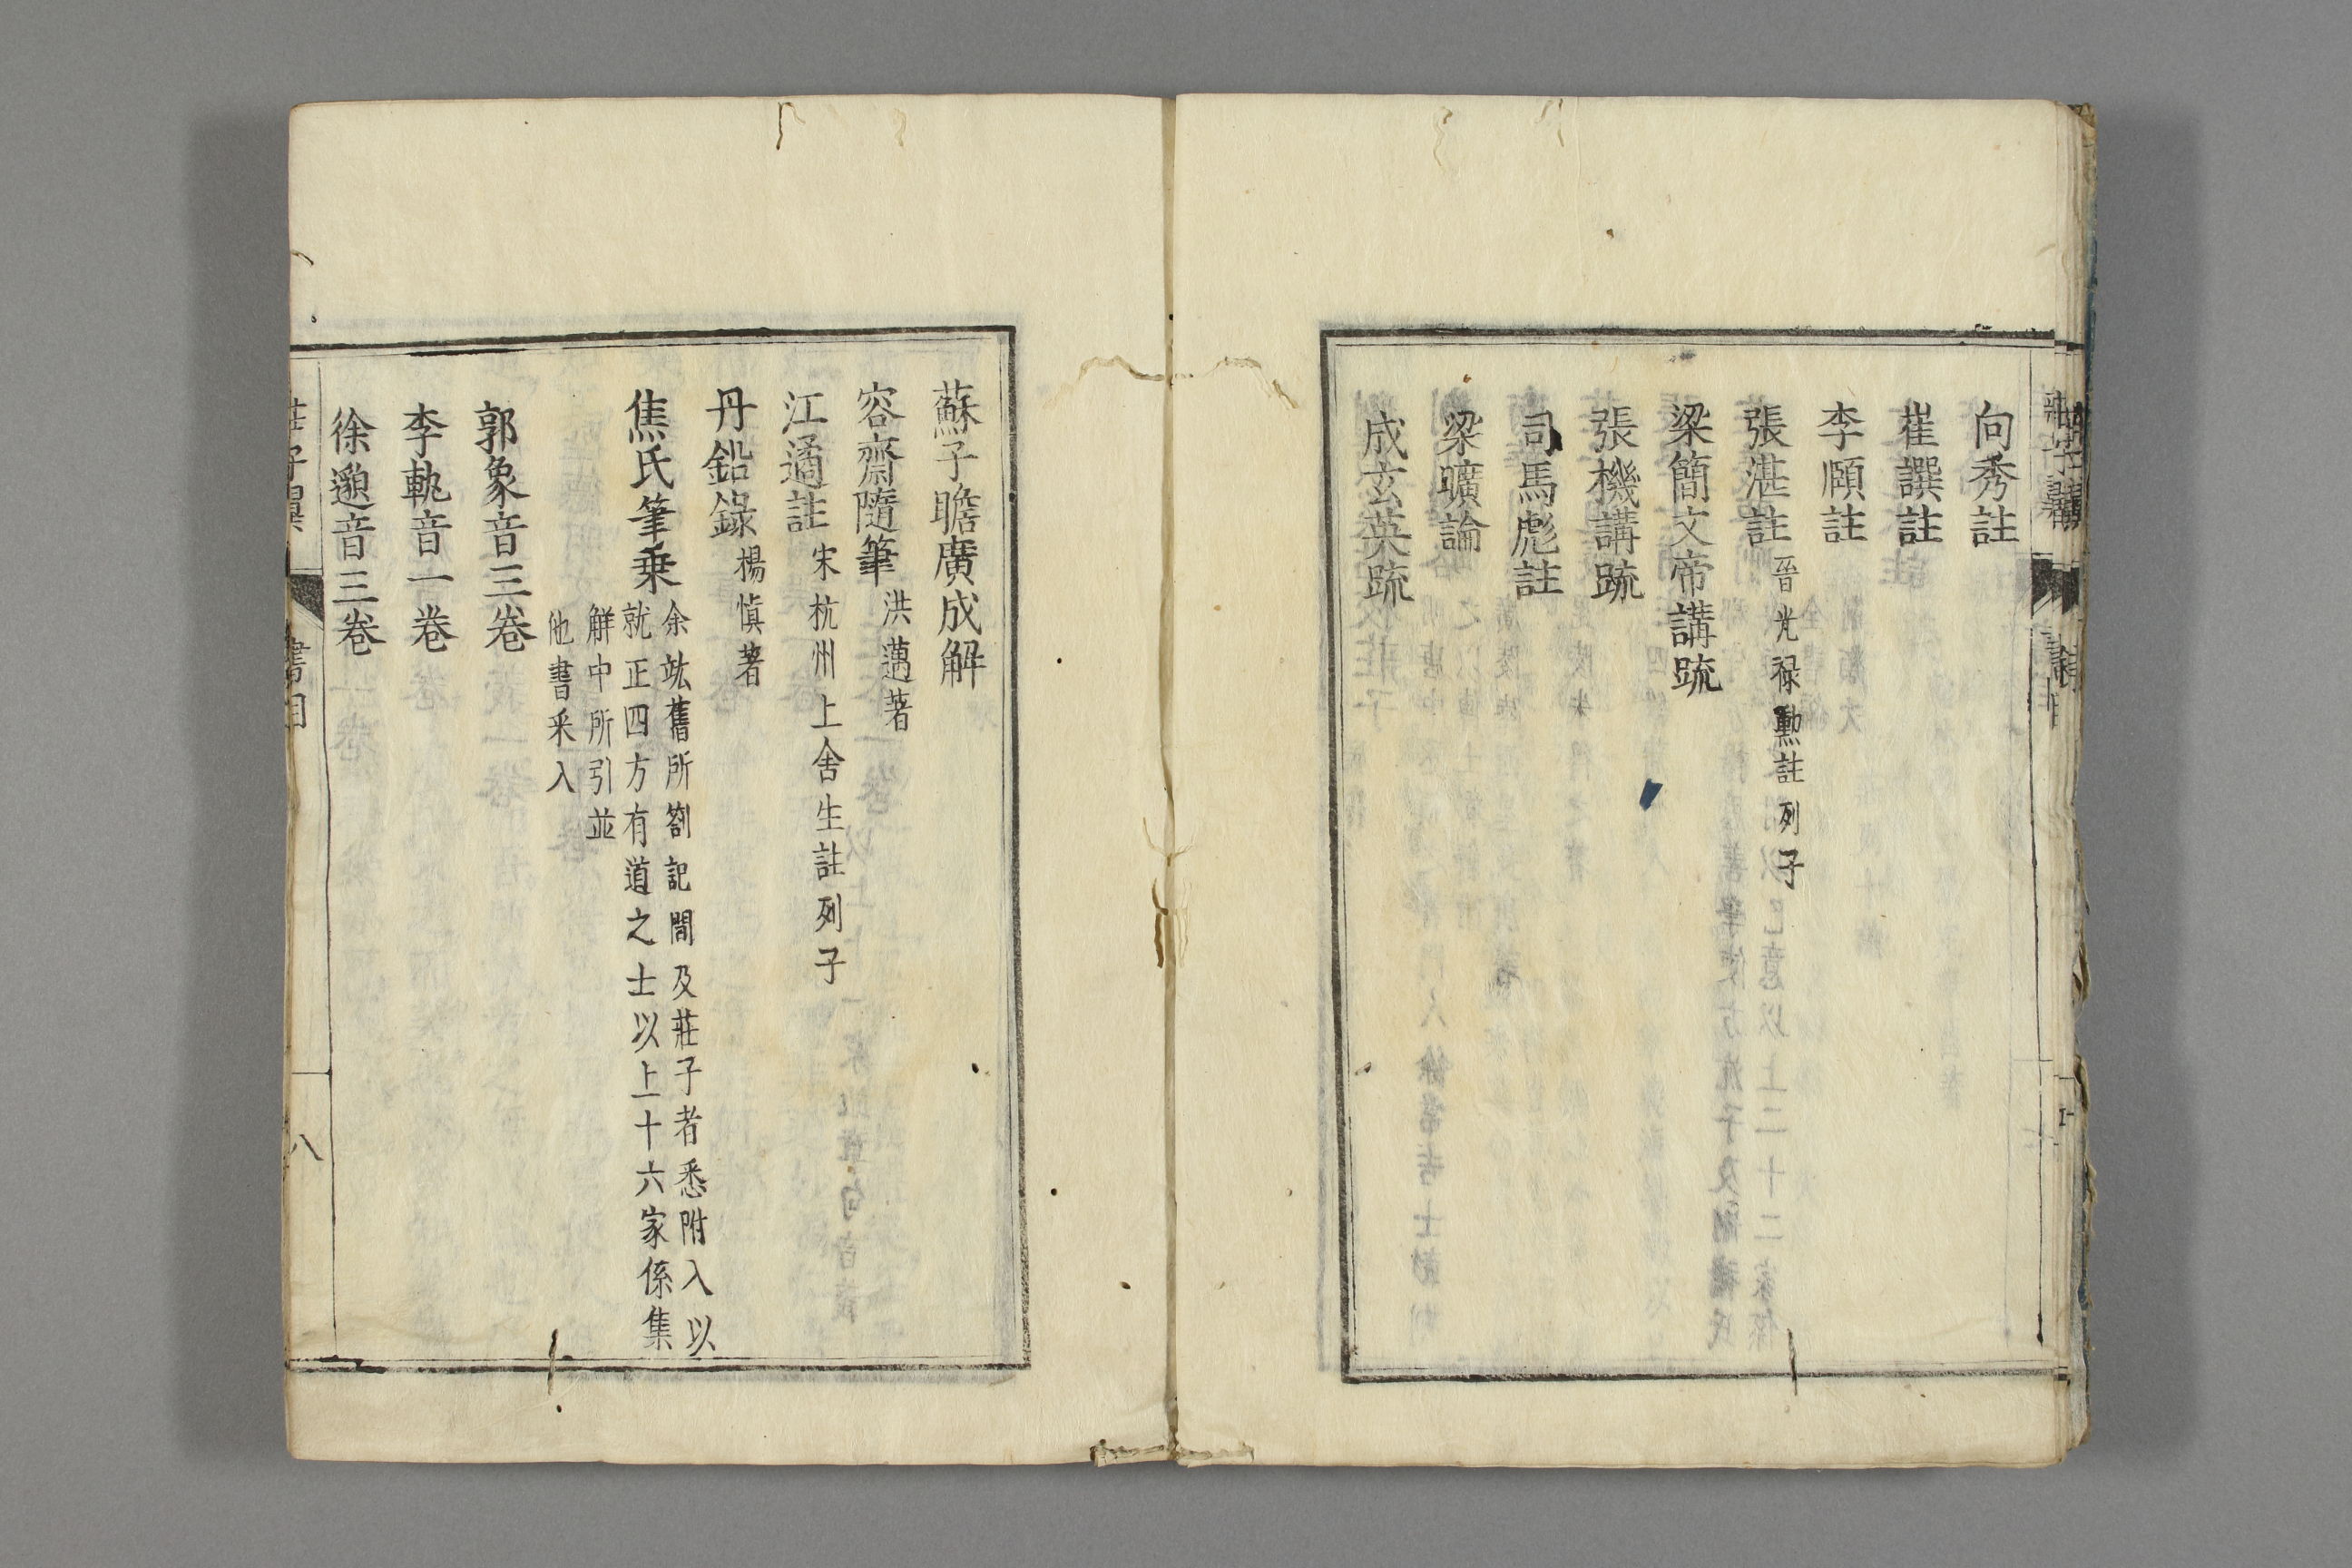 向秀註
崔譔註
李頤註
張湛註 晉光祿勳註列子
梁簡文帝講疏
張機講疏
司馬彪註
梁曠論
成玄英疏
蘇子瞻廣成解
容齋隨筆 洪邁著
江遹註 宋杭州上舍生註列子
丹鉛錄 楊慎著
焦氏筆乗 余竑舊所劄記間及莊子者悉附入以
就正四方有道之士以上十六家係集
解中所引並
他書采入
郭象音三卷
李軌音一卷
徐邈音三卷
莊子翼 書目 八